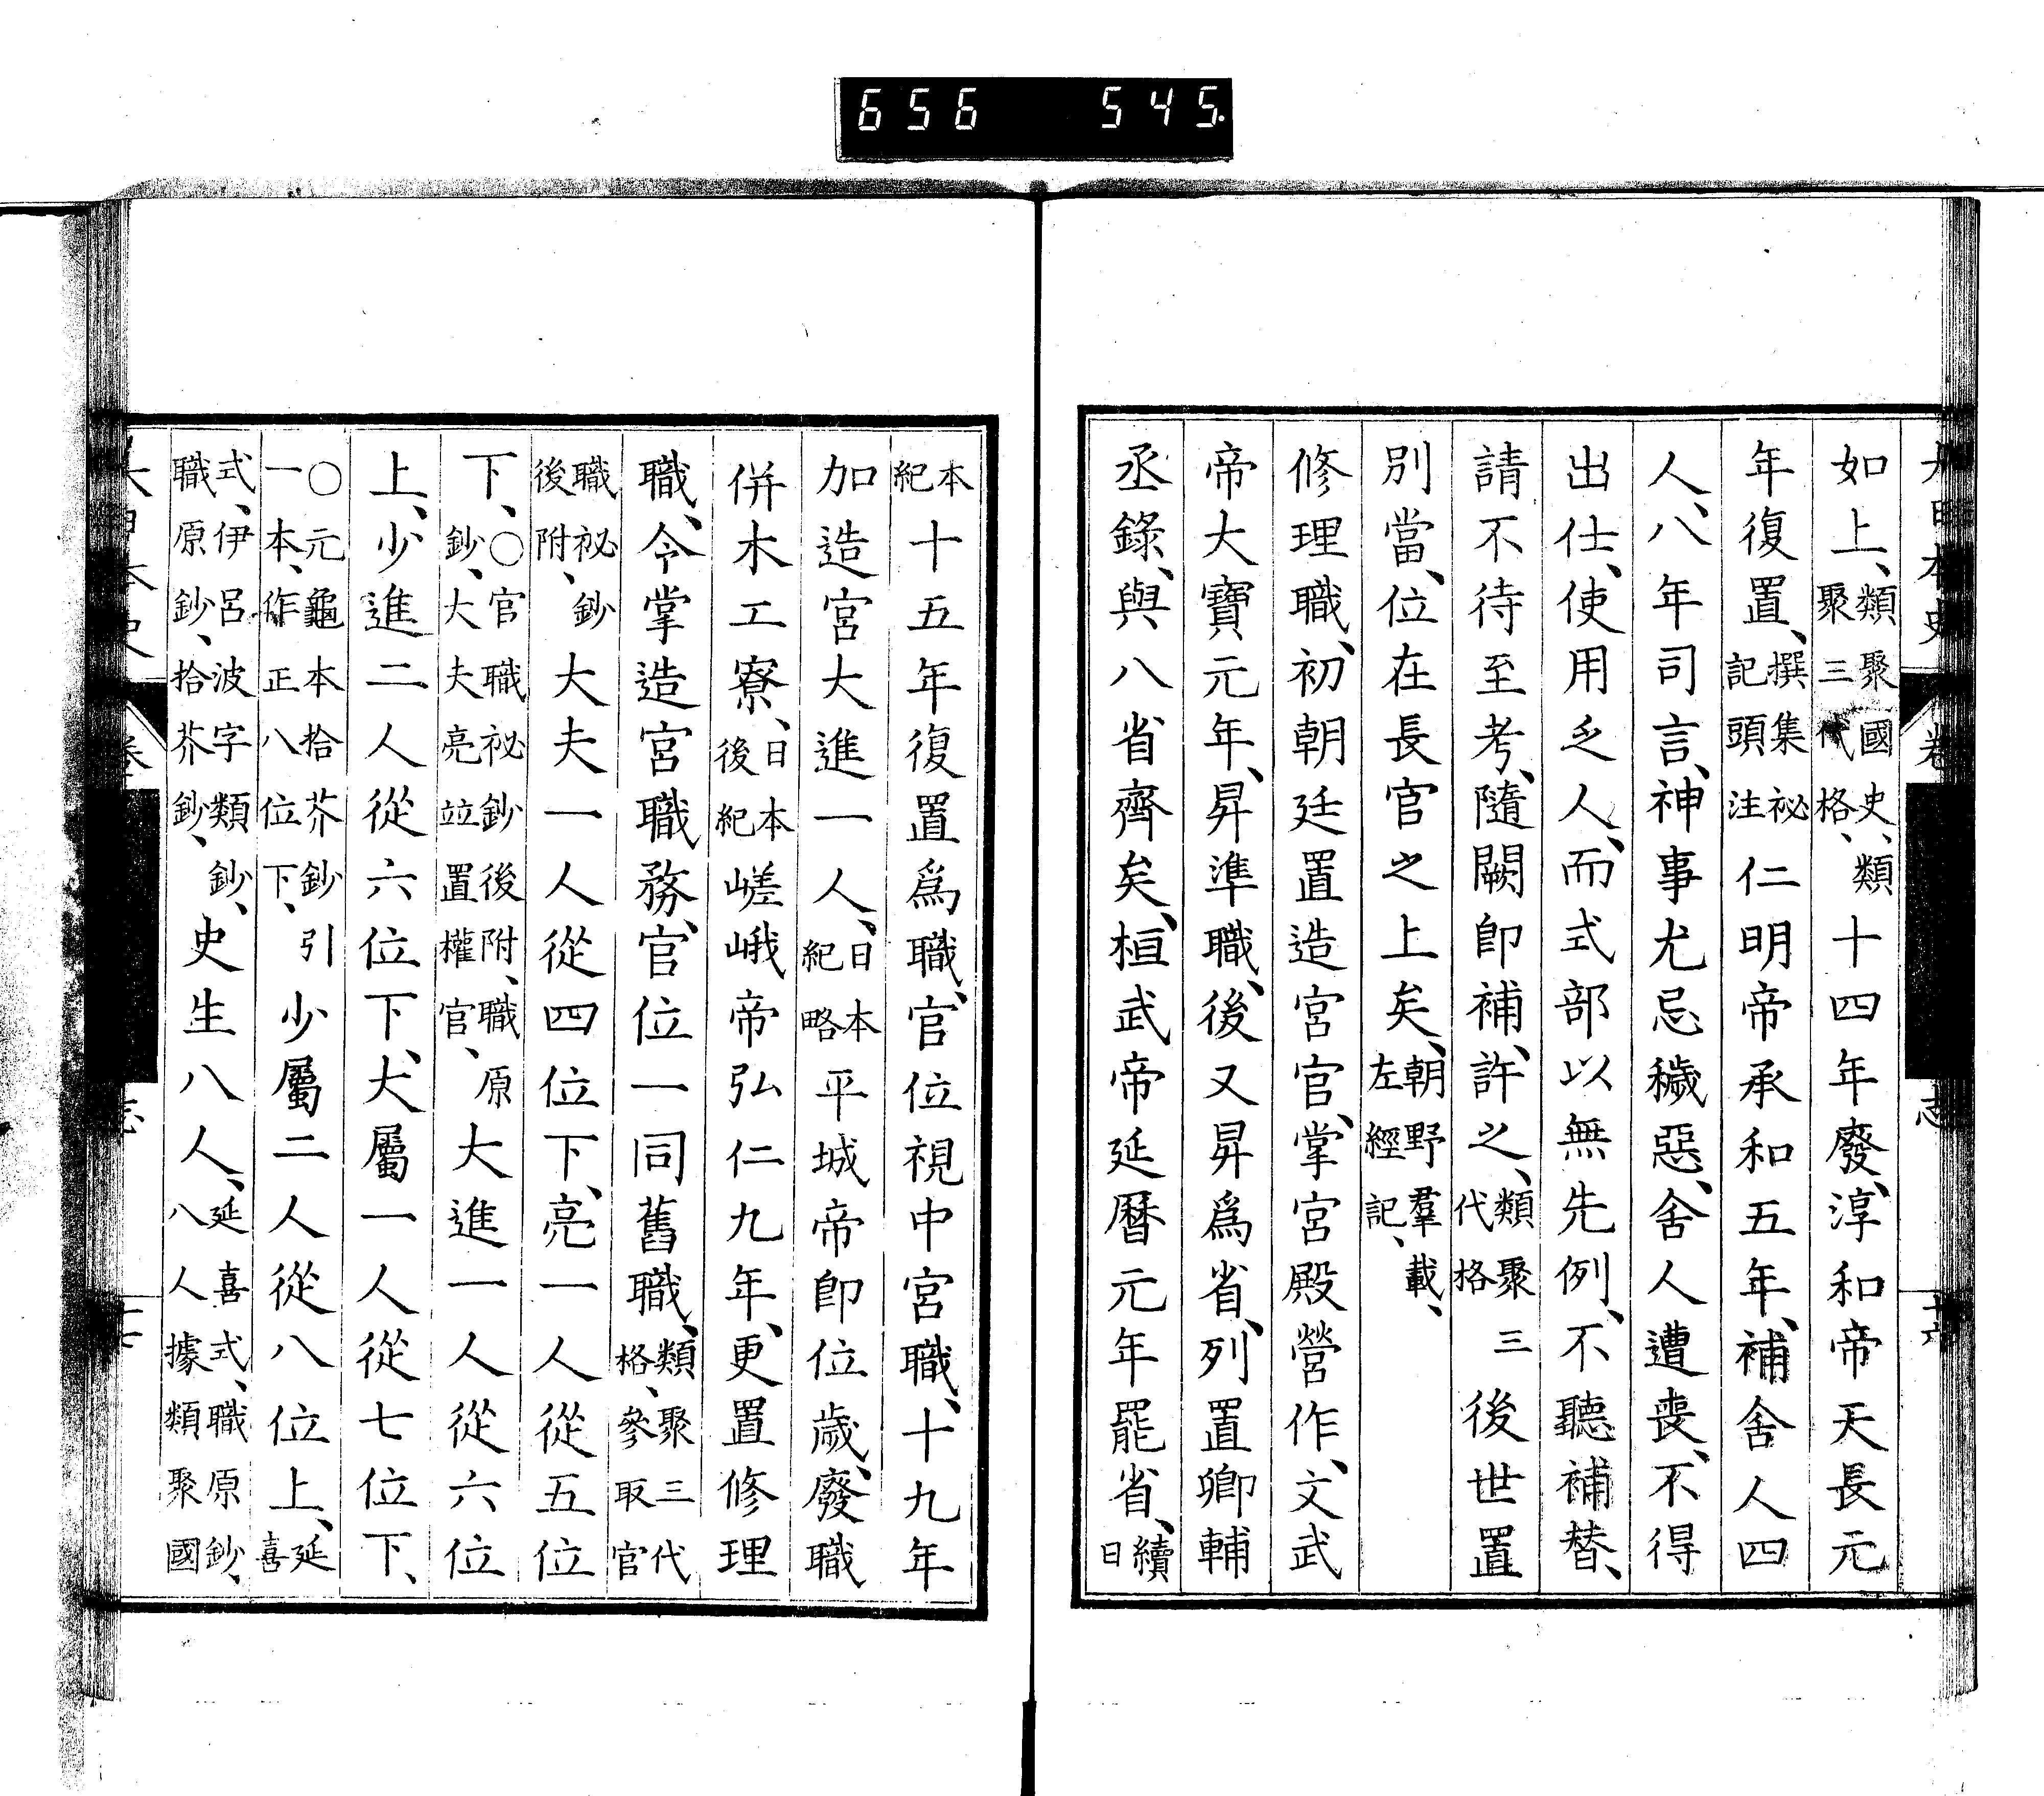 656 545.
大日本史 卷 志 十六
如上、類聚國史、類聚三代格、十四年廢、淳和帝天長元
年復置、撰集祕記頭注仁明帝承和五年、補舍人四
人、八年司言、神事尤忌穢惡、舍人遭喪、不得
出仕、使用乏人、而式部以無先例、不聽補替、
請不待至考、隨闕卽補、許之、類聚三代格後世置
別當、位在長官之上矣、朝野羣載、左經記、
修理職、初朝廷置造宮官、掌宮殿營作、文武
帝大寶元年、昇準職、後又昇爲省、列置卿輔
丞錄、與八省齊矣、桓武帝延曆元年罷省、續日
本紀十五年復置爲職、官位視中宮職、十九年
加造宮大進一人、日本紀略平城帝卽位歲、廢職
併木工寮、日本後紀嵯峨帝弘仁九年、更置修理
職、令掌造宮職務、官位一同舊職、類聚三代格、參取官
職祕鈔後附、大夫一人從四位下、亮一人從五位
下、○官職祕鈔後附、職原鈔、大夫亮竝置權官、大進一人從六位
上、少進二人從六位下、大屬一人從七位下、
○元龜本拾芥鈔引一本、作正八位下、少屬二人從八位上、延喜
式、伊呂波字類鈔、職原鈔、拾芥鈔、史生八人、延喜式、職原鈔、八人據類聚國
大日本史 卷 志 十七